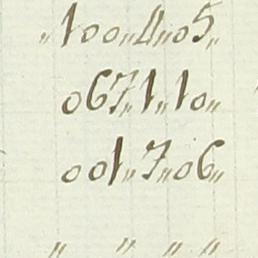 „100„4„05„
067„1„10„
001„7„06„
„ „ „ „